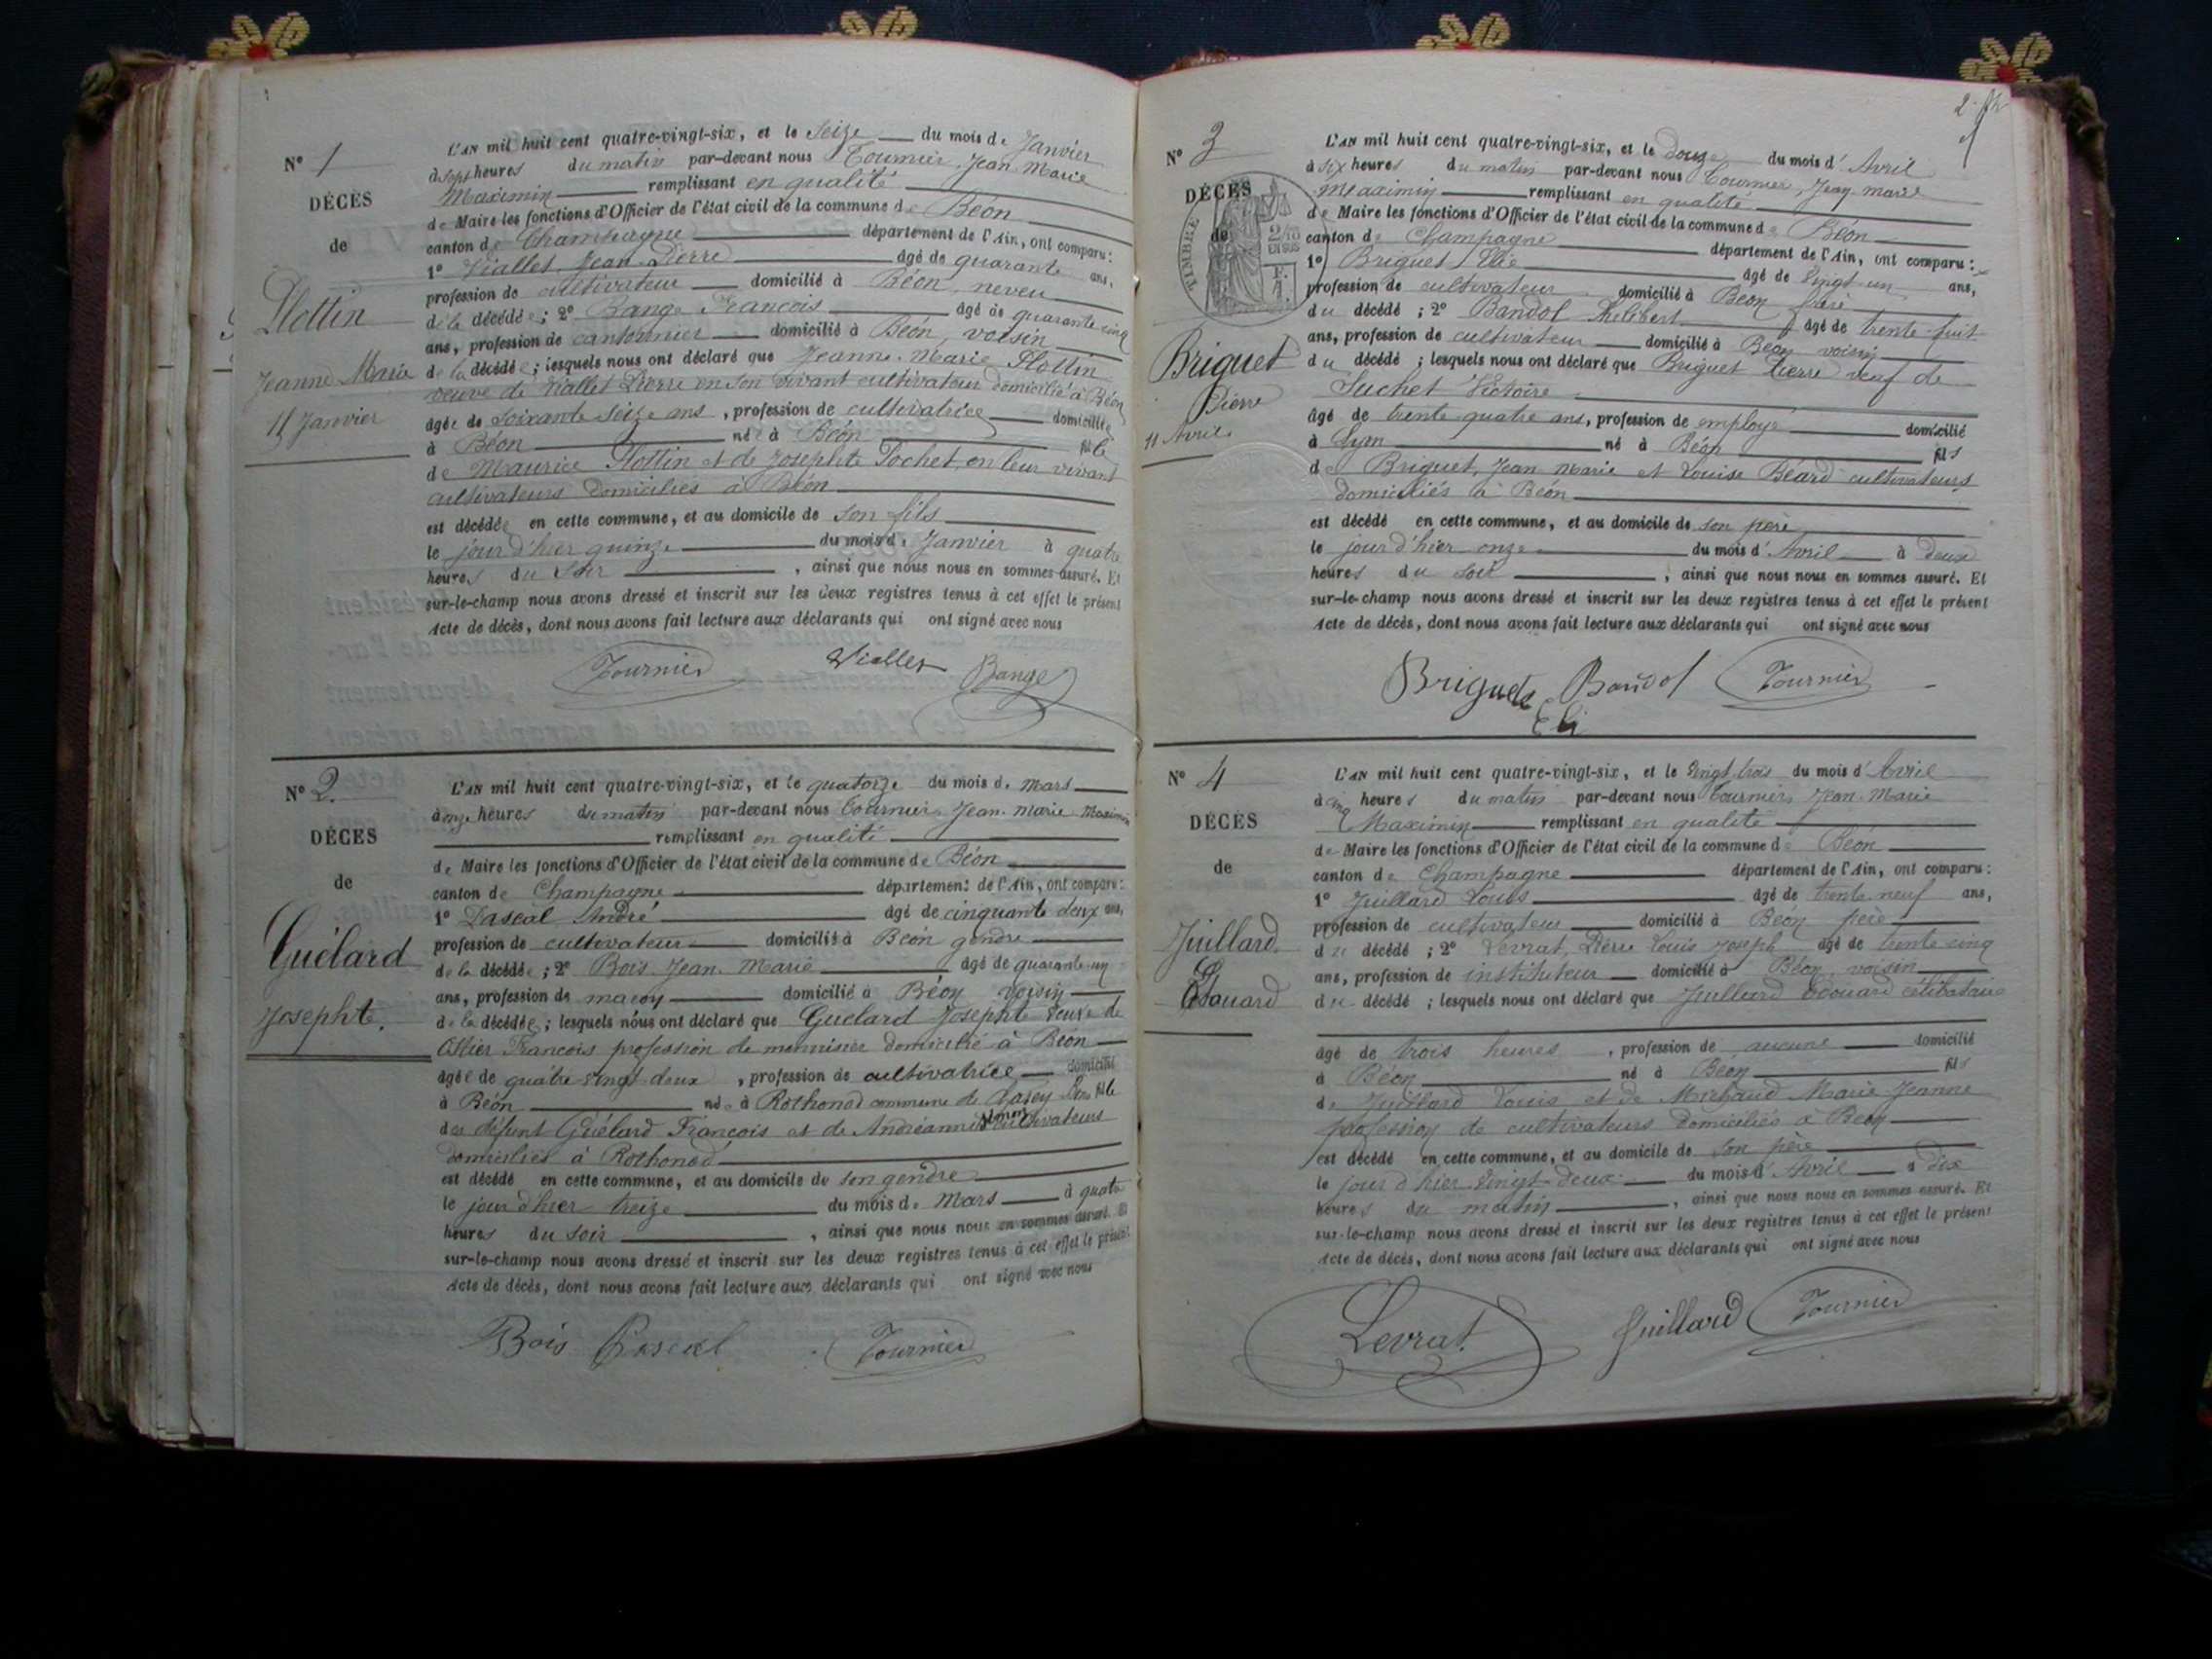 N° 1
DÉCÈS
de
Plottin
Jeanne Marie
15 Janvier
L'AN mil huit cent quatre-vingt-six, et le Seize du mois de Janvier
à sept heures du matin par-devant nous Tournier, Jean Marie
Maximin remplissant en qualité
de Maire les fonctions d'Officier de l'état civil de la commune de Béon
canton de Champagne département de l'Ain, ont comparu :
1° Viallet Jean Pierre âgé de quarante ans,
profession de cultivateur domicilié à Béon, neveu
de la décédée ; 2° Bange François âgé de quarante cinq
ans, profession de cantonnier domicilié à Béon, voisin
de la décédée ; lesquels nous ont déclaré que Jeanne Marie Plottin
veuve de Viallet Pierre en son vivant cultivateur domicilié à Béon
âgée de soixante seize ans, profession de cultivatrice domiciliée
à Béon née à Béon fille
de Maurice Plottin et de Josephte Pochet, en leur vivant
cultivateurs domiciliés à Béon
est décédée en cette commune, et au domicile de son fils
le jour d'hier quinze du mois de Janvier à quatre
heures du soir, ainsi que nous nous en sommes assuré. Et
sur-le-champ nous avons dressé et inscrit sur les deux registres tenus à cet effet le présent
Acte de décès, dont nous avons fait lecture aux déclarants qui ont signé avec nous
Tournier Viallet Bange
N° 2
DÉCÈS
de
Guélard
Josephte.
L'AN mil huit cent quatre-vingt-six, et le quatorze du mois de Mars
à onze heures du matin par-devant nous Tournier, Jean-Marie Maximin
remplissant en qualité
de Maire les fonctions d'Officier de l'état civil de la commune de Béon
canton de Champagne département de l'Ain, ont comparu :
1° Pascal André âgé de cinquante deux ans,
profession de cultivateur domicilié à Béon gendre
de la décédée ; 2° Bois Jean-Marie âgé de quarante-un
ans, profession de maçon domicilié à Béon voisin
de la décédée ; lesquels nous ont déclaré que Guélard Josephte veuve de
François profession de menuisier domicilié à Béon
âgée de quatre vingt deux, profession de cultivatrice domicilié
à Béon née à Rothonod commune de fille
de défunt Guélard François et de cultivateurs
domiciliés à Rothonod
est décédé en cette commune, et au domicile de son gendre
le jour d'hier treize du mois de Mars à quatre
heures du soir, ainsi que nous nous en sommes assuré. Et
sur-le-champ nous avons dressé et inscrit sur les deux registres tenus à cet effet le présent
Acte de décès, dont nous avons fait lecture aux déclarants qui ont signé avec nous
Bois Pascal Tournier
N° 3
DÉCÈS
de
TIMBRE
Briguet
Pierre
11 Avril
L'AN mil huit cent quatre-vingt-six, et le douze du mois d'Avril
à six heures du matin par-devant nous Tournier, Jean-Marie
Maximin remplissant en qualité
de Maire les fonctions d'Officier de l'état civil de la commune de Béon
canton de Champagne département de l'Ain, ont comparu :
1° Briguet Elie âgé de vingt-un ans,
profession de cultivateur domicilié à Béon frère
du décédé ; 2° Bandol Philibert âgé de trente-huit
ans, profession de cultivateur domicilié à Béon voisin
du décédé ; lesquels nous ont déclaré que Briguet Pierre veuf de
Suchet Victoire
âgé de trente quatre ans, profession de employé domicilié
à Lyon né à Béon fils
de Briguet, Jean-Marie et Louise Béard cultivateurs
domiciliés à Béon
est décédé en cette commune, et au domicile de son père
le jour d'hier onze du mois d'Avril à deux
heures du soir, ainsi que nous nous en sommes assuré. Et
sur-le-champ nous avons dressé et inscrit sur les deux registres tenus à cet effet le présent
Acte de décès, dont nous avons fait lecture aux déclarants qui ont signé avec nous
Briguet Eli Bandol Tournier
N° 4
DÉCÈS
de
Juillard
Edouard
L'AN mil huit cent quatre-vingt-six, et le vingt trois du mois d'Avril
à cinq heures du matin par-devant nous Tournier, Jean-Marie
Maximin remplissant en qualité
de Maire les fonctions d'Officier de l'état civil de la commune de Béon
canton de Champagne département de l'Ain, ont comparu :
1° Juillard Louis âgé de trente neuf ans,
profession de cultivateur domicilié à Béon père
du décédé ; 2° Levrat, Pierre Louis Joseph âgé de trente cinq
ans, profession de instituteur domicilié à Béon, voisin
du décédé ; lesquels nous ont déclaré que Juillard Edouard célibataire
âgé de trois heures, profession de aucune domicilié
à Béon né à Béon fils
de Juillard Louis et de Marie Jeanne
profession de cultivateurs domiciliés à Béon
est décédé en cette commune, et au domicile de son père
le jour d'hier vingt-deux du mois d'Avril à dix
heures du matin, ainsi que nous nous en sommes assuré. Et
sur-le-champ nous avons dressé et inscrit sur les deux registres tenus à cet effet le présent
Acte de décès, dont nous avons fait lecture aux déclarants qui ont signé avec nous
Levrat Juillard Tournier